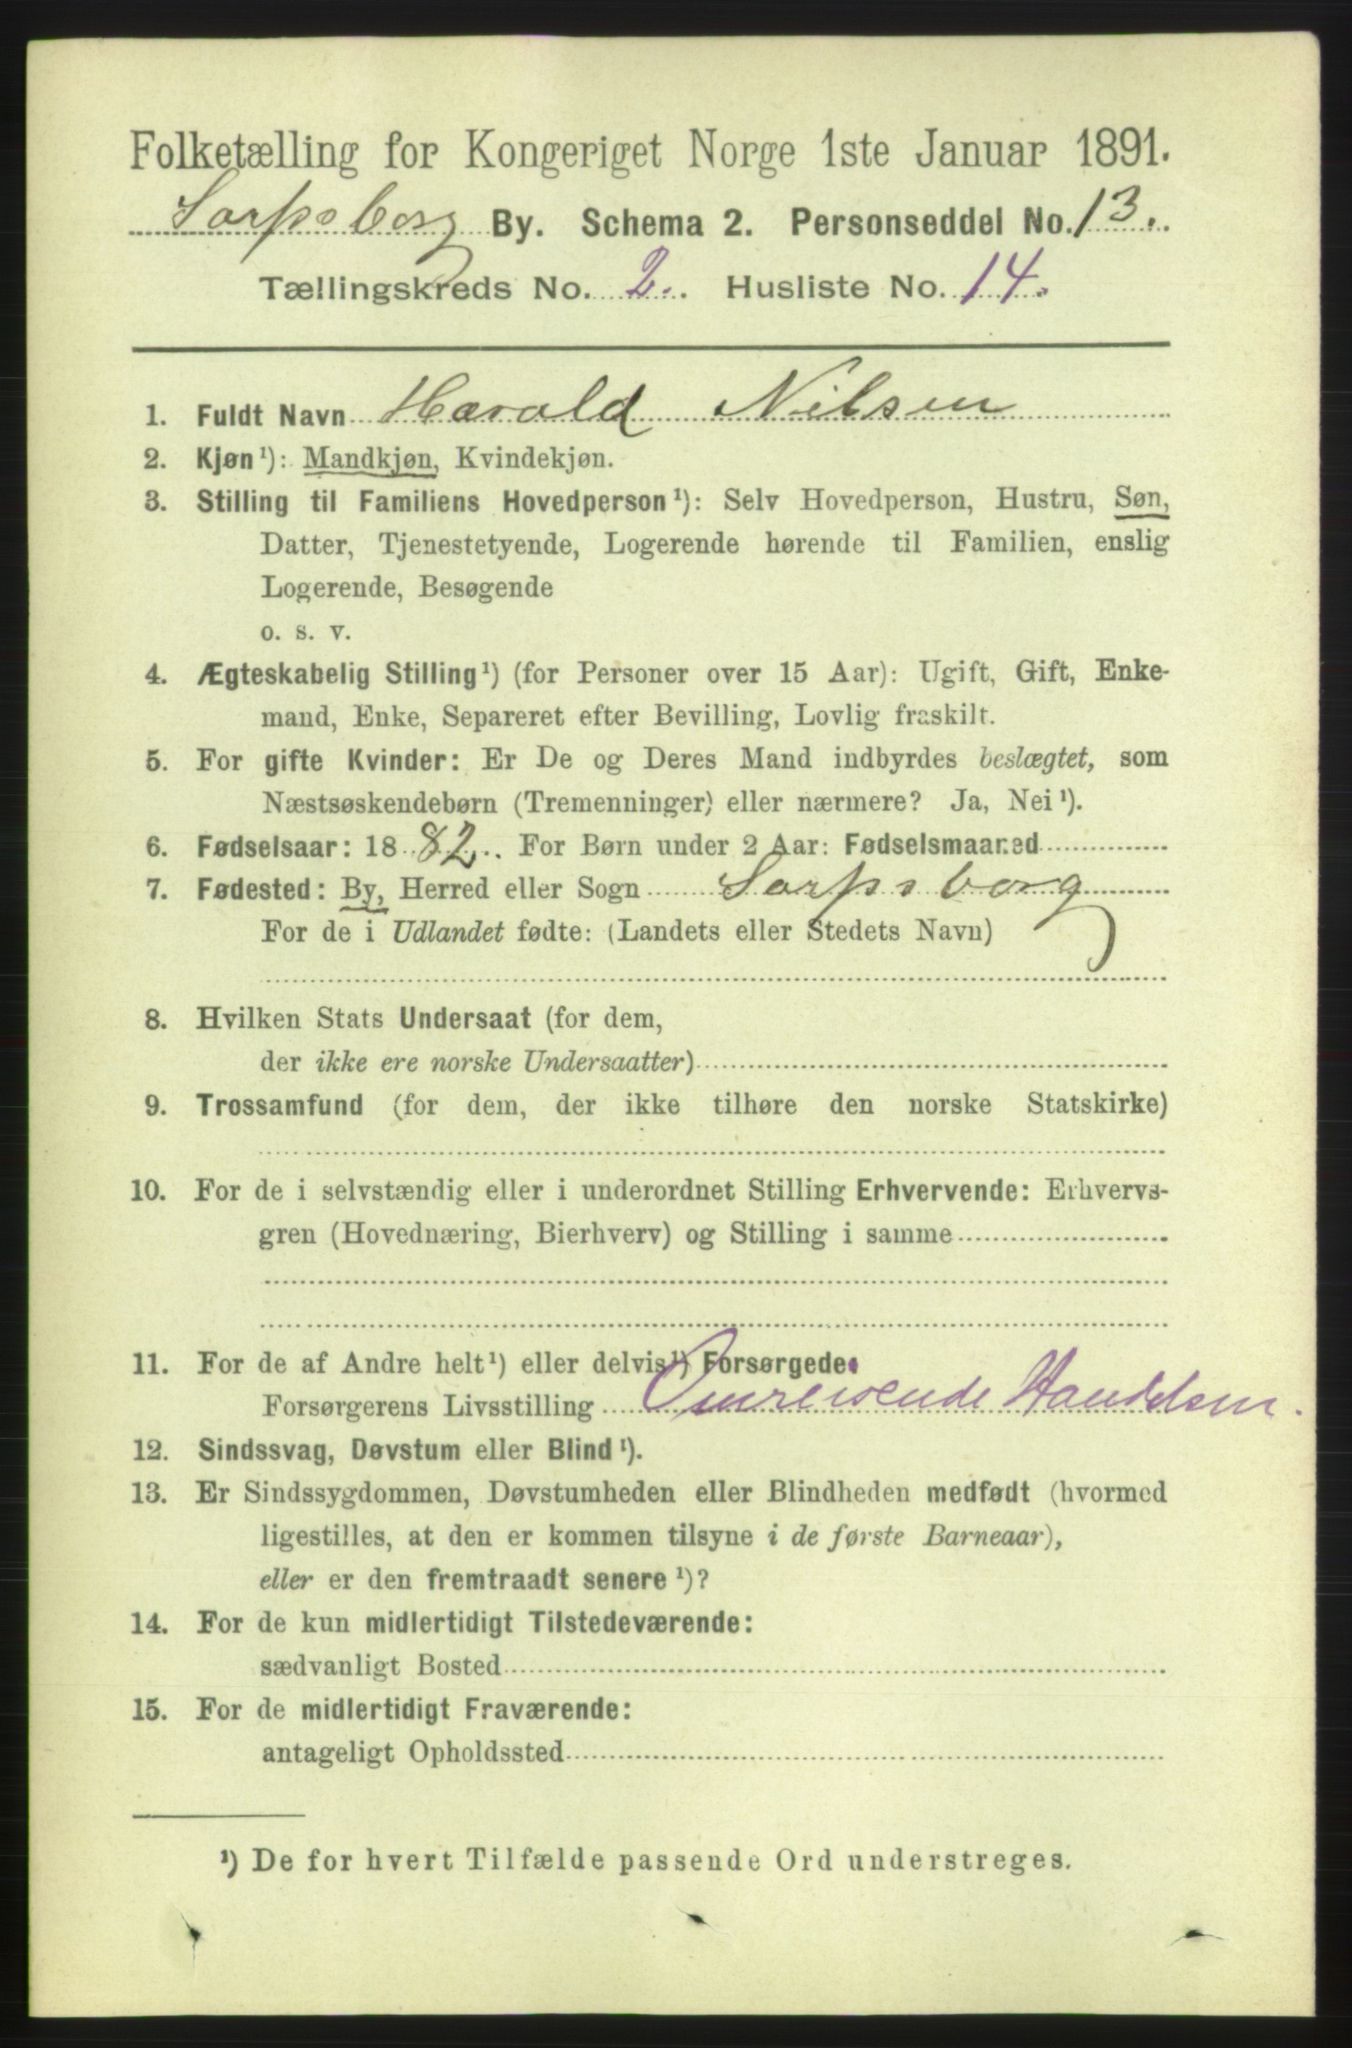 Folketælling for Kongeriget Norge 1ste Januar 1891.
Sarpsborg By. Schema 2. Personseddel No. 13.
Tællingskreds No. 2. Husliste No. 14.
1. Fuldt Navn Harald Nilsen
2. Kjøn¹): Mandkjøn, Kvindekjøn.
3. Stilling til Familiens Hovedperson¹): Selv Hovedperson, Hustru, Søn,
Datter, Tjenestetyende, Logerende hørende til Familien, enslig
Logerende, Besøgende
o. s. v.
4. Ægteskabelig Stilling¹) (for Personer over 15 Aar): Ugift, Gift, Enke-
mand, Enke, Separeret efter Bevilling, Lovlig fraskilt.
5. For gifte Kvinder: Er De og Deres Mand indbyrdes beslægtet, som
Næstsøskendebørn (Tremenninger) eller nærmere? Ja, Nei¹).
6. Fødselsaar: 1882. For Børn under 2 Aar: Fødselsmaaned
7. Fødested: By, Herred eller Sogn Sarpsborg
For de i Udlandet fødte: (Landets eller Stedets Navn)
8. Hvilken Stats Undersaat (for dem,
der ikke ere norske Undersaatter)
9. Trossamfund (for dem, der ikke tilhøre den norske Statskirke)
10. For de i selvstændig eller i underordnet Stilling Erhvervende: Erhvervs-
gren (Hovednæring, Bierhverv) og Stilling i samme
11. For de af Andre helt¹) eller delvis¹) Forsørgede:
Forsørgerens Livsstilling Omreisende Handelsm.
12. Sindssvag, Døvstum eller Blind¹).
13. Er Sindssygdommen, Døvstumheden eller Blindheden medfødt (hvormed
ligestilles, at den er kommen tilsyne i de første Barneaar),
eller er den fremtraadt senere¹)?
14. For de kun midlertidigt Tilstedeværende:
sædvanligt Bosted
15. For de midlertidigt Fraværende:
antageligt Opholdssted
¹) De for hvert Tilfælde passende Ord understreges.